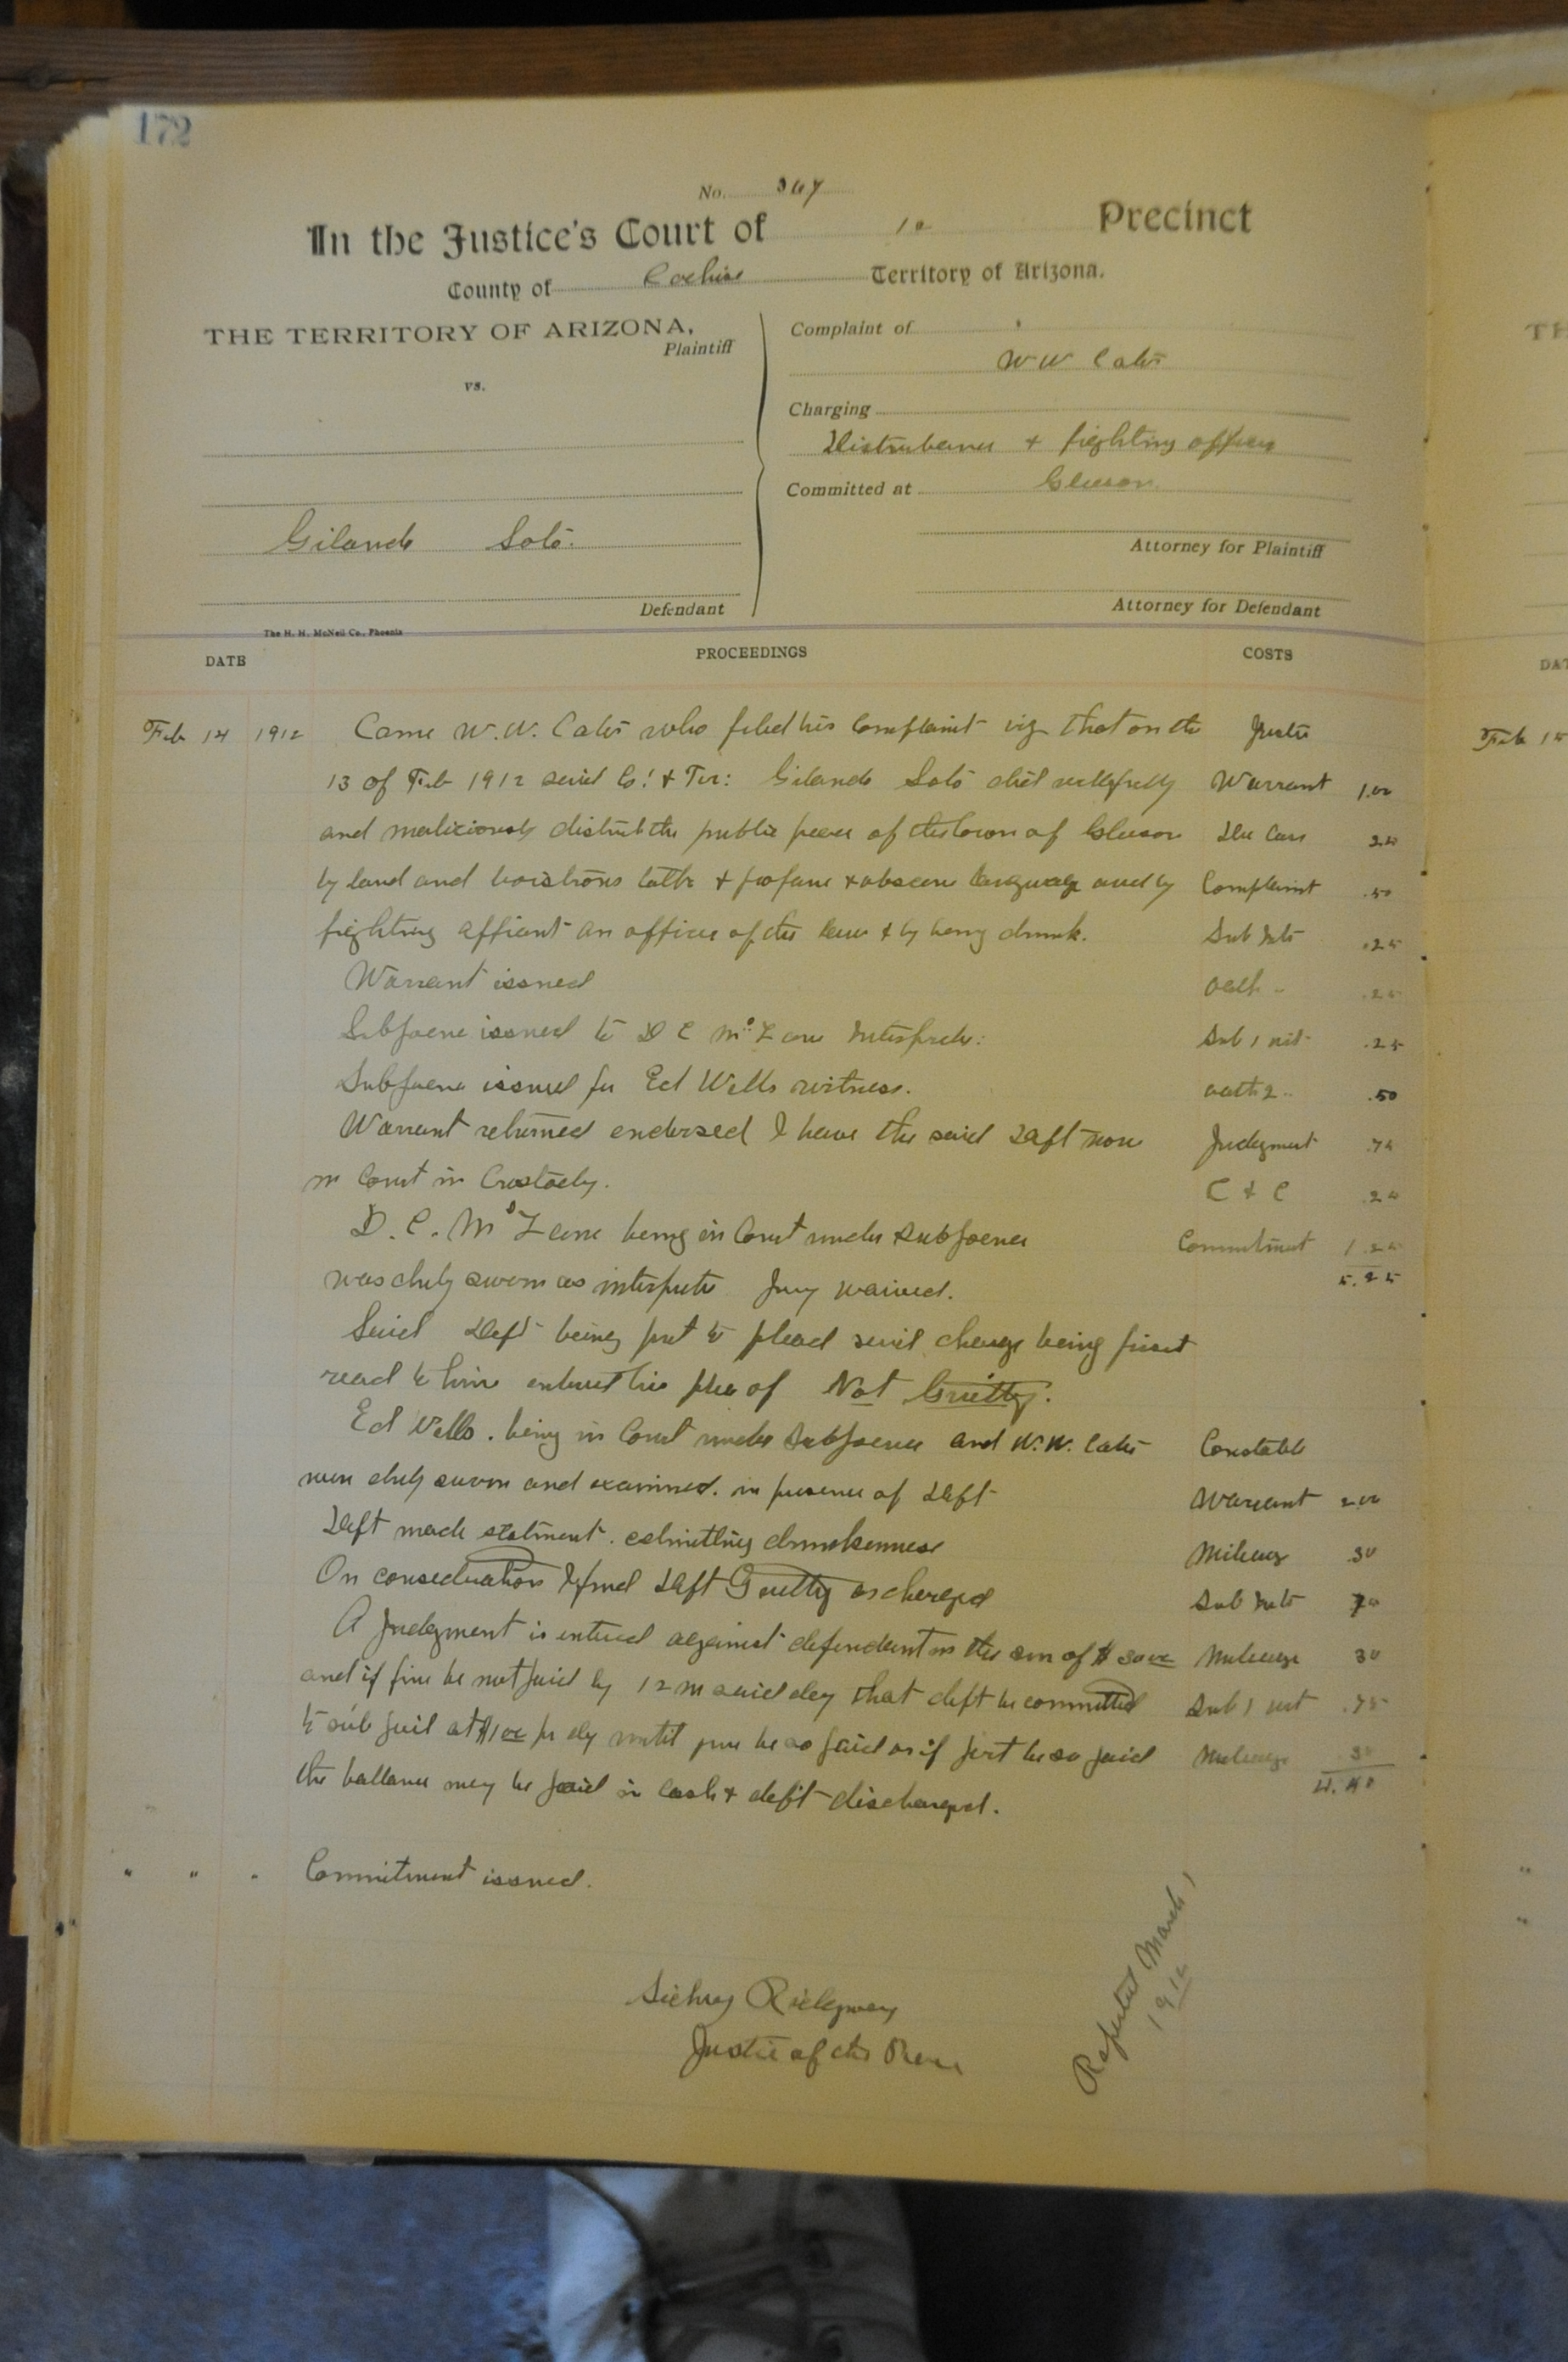 172
No.
In the Justice's Court of 10 Precinct
County of Cochise Territory of Arizona.
THE TERRITORY OF ARIZONA,
Plaintiff
vs.
Soto.
Defendant
The H. H. McNeil Co., Phoenix
Complaint of
W W Cates
Charging
& fighting officer
Committed at Gleeson
Attorney for Plaintiff
Attorney for Defendant
DATE PROCEEDINGS COSTS
Feb 14 1912 Came W. W. Cates who filed his Complaint viz that on the Justice
13 of Feb 1912 said Co! & Ter: Soto did willfully Warrant 1.00
and maliciously the public peace of the town of Gleeson
by loud and talk & profane & obscene language and by Complaint .50
fighting affiant an officer of the law & by being drunk. .25
Warrant issued oath .25
issued to D C Interpreter: Sub 1 wit .25
issued for Ed Wells witness. oath 2 .50
Warrant returned endorsed I have the said Deft now Judgment .75
in Court in Custody. C & C
D. C. being in Court under Subpoena
was duly sworn as Jury waived. 5.25
Said Deft being put to plead said charge being first
read to him entered his plea of Not Guilty.
Ed Wells. being in Court under Subpoena and W. W. Cates Constable
were duly sworn and examined. in presence of Deft Warrant 2.00
Deft made statment. admitting drunkenness Mileage .30
On I find Deft Guilty as charged
A Judgment is entered against defendant in the sum of $ 30.00 Mileage 30
and if fine be not paid by 12 m said day that deft be committed Sub 1 wit
to sub jail at $1.00 pr dy until fine be so paid or if part be so paid Mileage
the ballance may be paid in cash & deft discharged.
" " " Commitment issued.
Ridgway
Justice of the Peace
Reported March 1
1912
Feb 15